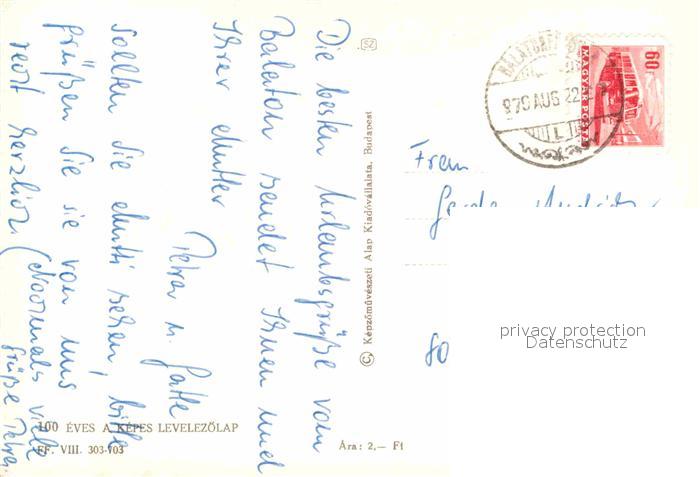 Die besten Urlaubsgrüße vom
Balaton sendet Ihnen und
Ihrer Mutter
Petra u. Gatte
Sollten Sie Mutti sehen, bitte
grüßen Sie sie von uns
recht herzlich. (Nochmals viele
Grüße Petra.
100 ÉVES A KÉPES LEVELEZŐLAP
FF. VIII. 303-703
Ára: 2,— Ft
© Képzőművészeti Alap Kiadóvállalata, Budapest
SZ
970 AUG 22
60f
MAGYAR POSTA
Frau
80
privacy protection
Datenschutz